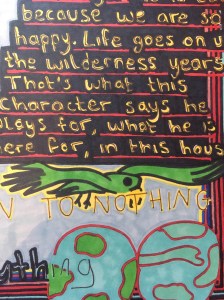 because we are so
happy. Life goes on
the wilderness years
That's what this
character says he
for, what he is
here for, in this hous
TO NOTHING